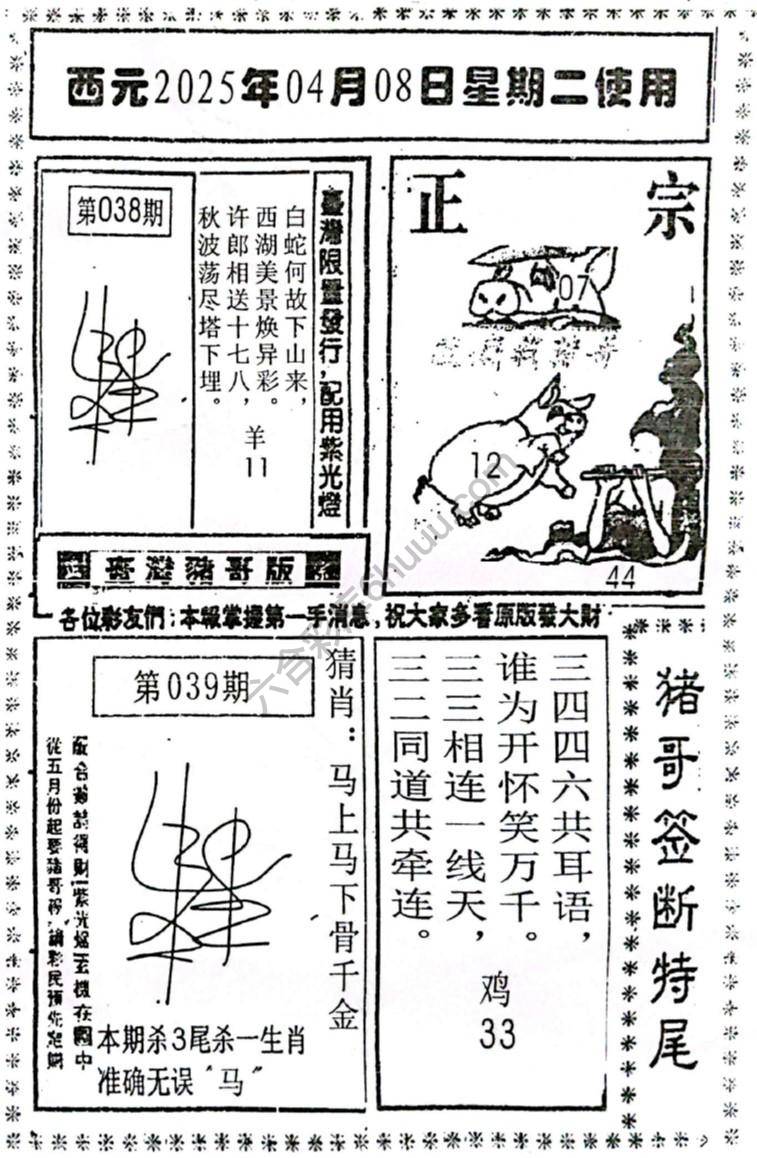 西元2025年04月08日星期二使用
第038期
臺灣限量發行，配用紫光燈
白蛇何故下山来，
西湖美景焕异彩。
许郎相送十七八，
秋波荡尽塔下埋。
羊
11
臺灣豬哥版
正宗
07
12
44
各位彩友們：本報掌握第一手消息，祝大家多看原版發大財
第039期
猜肖：马上马下骨千金
從五月份起要豬哥
本期杀3尾杀一生肖
准确无误“马”
三四四六共耳语，
谁为开怀笑万千。
三三相连一线天，
三二同道共牵连。
鸡
33
猪哥签断特尾
六合彩库6huuu.com